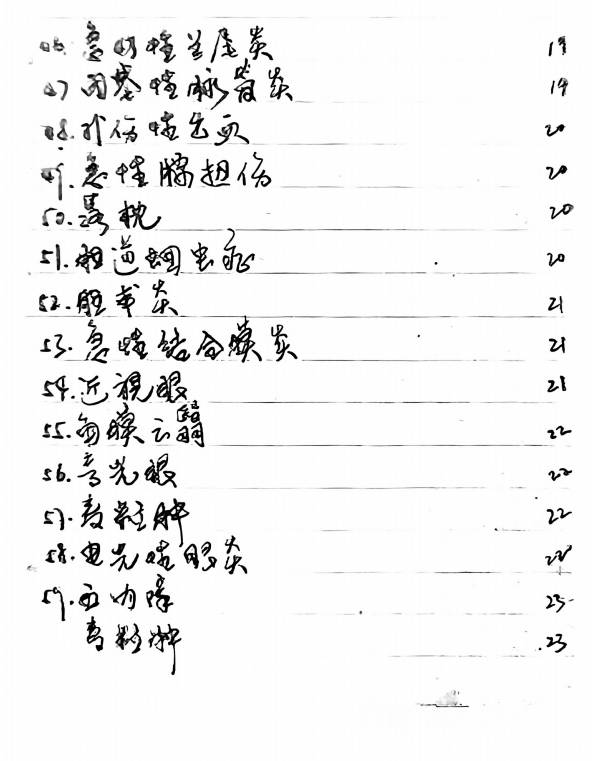 46. 急性兰尾炎 19
47 闭塞性脉管炎 19
48. 外伤性出血 20
49. 急性腰扭伤 20
50. 落枕 20
51. 胆道蛔虫症 20
52. 胆囊炎 21
53. 急性结合膜炎 21
54. 近視眼 21
55. 角膜云翳 22
56. 青光眼 22
57. 麦粒肿 22
58. 电光性眼炎 22
59. 内障 23
麦粒肿 23